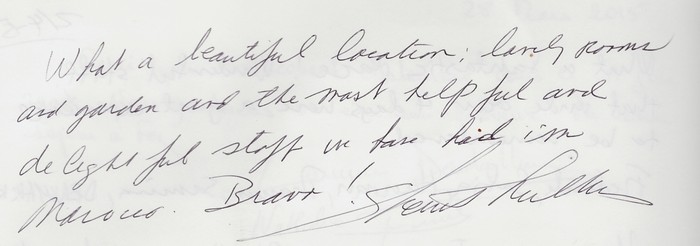 What a beautiful location; lovely rooms
and garden and the most helpful and
delightful staff we have had in
Marocco. Bravo!